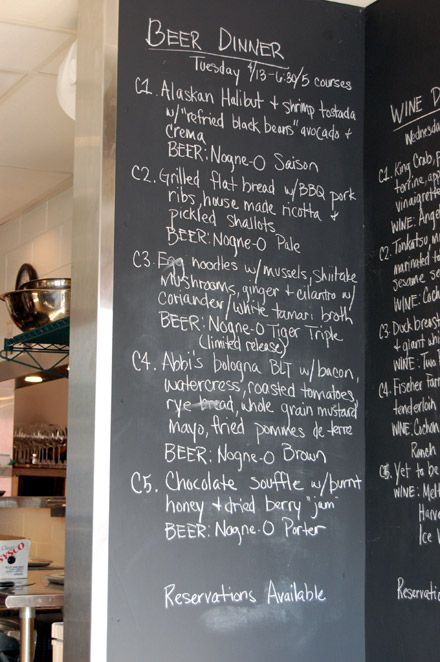 BEER DINNER
Tuesday 4/13-6:30/5 courses
C1. Alaskan Halibut + shrimp tostada
w/"refried black beans" avocado +
crema
BEER: Nogne-O Saison
C2. Grilled flat bread w/BBQ pork
ribs, house made ricotta +
pickled shallots
BEER: Nogne-O Pale
C3. Egg noodles w/mussels, shiitake
mushrooms, ginger + cilantro w/
coriander/white tamari broth
BEER: Nogne-O Tiger Triple
(limited release)
C4. Abbi's bologna BLT w/bacon,
watercress, roasted tomatoes,
rye bread, whole grain mustard
mayo, fried pommes de terre
BEER: Nogne-O Brown
C5. Chocolate Souffle w/burnt
honey + dried berry "jam"
BEER: Nogne-O Porter
Reservations Available
WINE
Wednesda
C1. King Crab,
tortine,
vinaigrette
WINE:
C2. Tonkatsu
marinated
sesame
WINE:
C3. Duck breast
+ giant
WINE: Two
C4. Fischer far
tenderloin
WINE:
Ranch
C5. Yet to be
WINE:
Harve
Ice
Reservatio
SYSCO